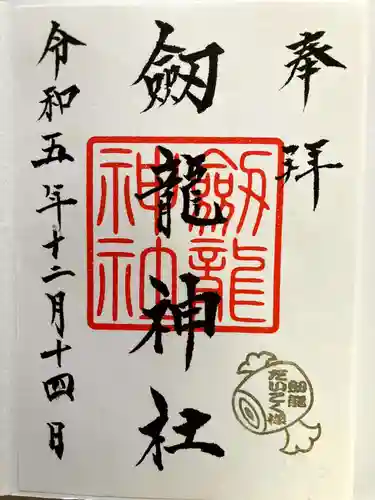 奉拝
劔龍神社
劔龍神社
令和五年十二月十四日
劔龍
だいこく様